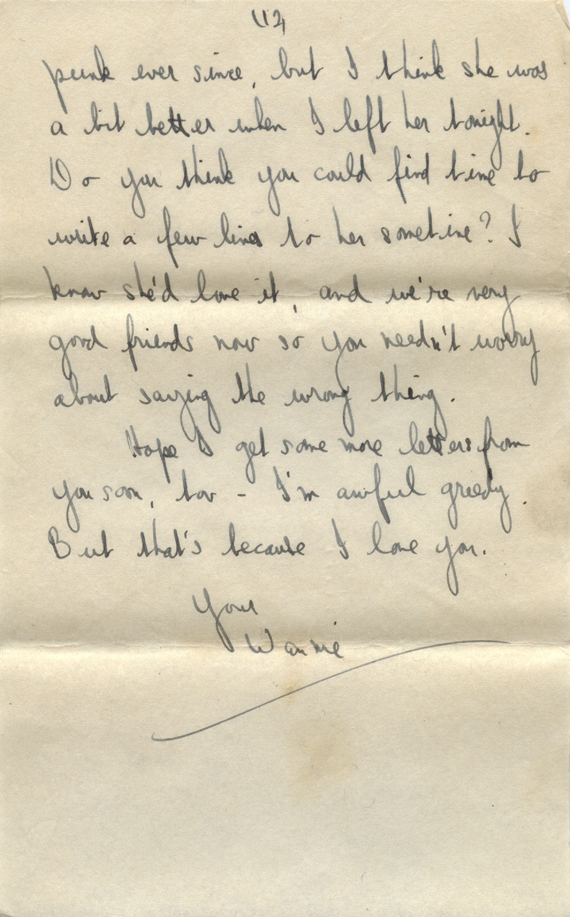 punk ever since, but I think she was
a bit better when I left her tonight.
Do you think you could find time to
write a few lines to her sometime? I
know she'd love it, and we're very
good friends now so you needn't worry
about saying the wrong thing.
Hope I get some more letters from
you soon, too - I'm awful greedy.
But that's because I love you.
Your